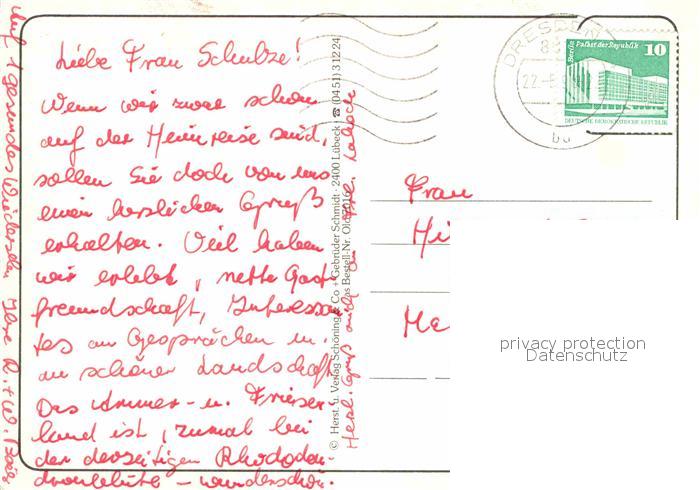 Liebe Frau Schulze!
Wenn wir zwar schon
auf der Heimreise sind,
sollen Sie doch von uns
einen herzlichen Gruß
erhalten. Viel haben
wir erlebt, nette Gast-
freundschaft, Interessan
tes an Gesprächen u.
an schöner Landschaft.
Das Ammer- u. Frieser
land ist, zumal bei
der derzeitigen Rhododen-
dronblüte - wunderschön.
Auf 1 gesundes Wiedersehen Ihre R. + W.
Herzl. Gruß auch an Fr.
© Herst. u. Verlag Schöning & Co + Gebrüder Schmidt · 2400 Lübeck · ☎ (0451) 31224
Bestell-Nr.
Frau
Hi
He
DRESDEN
22.-6
bb
Berlin Palast der Republik
10
DEUTSCHE DEMOKRATISCHE REPUBLIK
privacy protection
Datenschutz